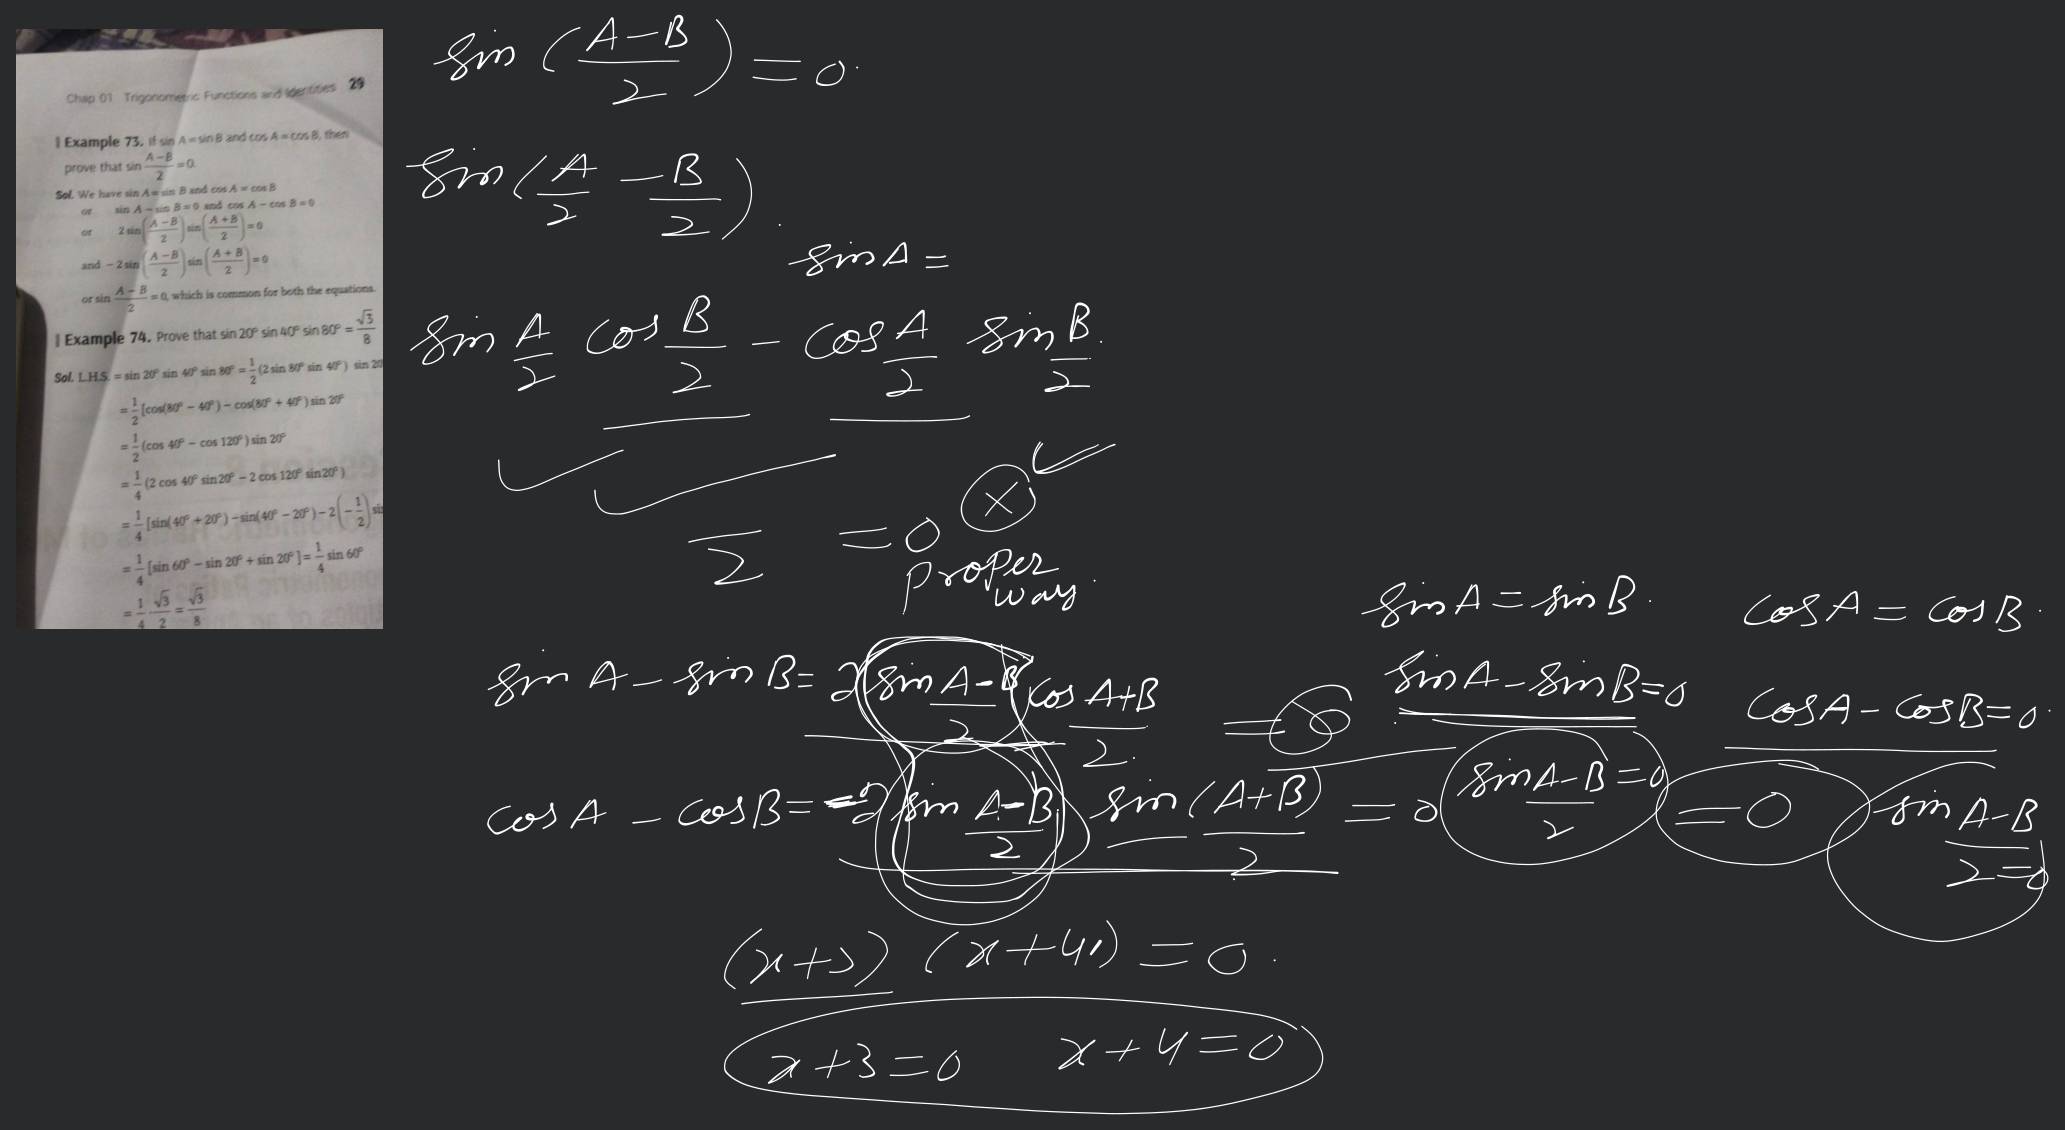 Chap 01 Trigonometric Functions and Identities 29
Example 73. If sin A = sin B and cos A = cos B, then
prove that sin (A – B)/2 = 0.
Sol. We have sin A = sin B and cos A = cos B
or sin A – sin B = 0 and cos A – cos B = 0
or 2 sin ((A – B)/2) sin ((A + B)/2) = 0
and – 2 sin ((A – B)/2) sin ((A + B)/2) = 0
or sin (A – B)/2 = 0, which is common for both the equations.
Example 74. Prove that sin 20° sin 40° sin 80° = √3/8
Sol. L.H.S. = sin 20° sin 40° sin 80° = 1/2 (2 sin 80° sin 40°) sin 20
= 1/2 [cos(80° – 40°) – cos(80° + 40°) sin 20°
= 1/2 (cos 40° – cos 120°) sin 20°
= 1/4 (2 cos 40° sin 20° – 2 cos 120° sin 20°)
= 1/4 [sin(40° + 20°) – sin(40° – 20°) – 2(–1/2) si
= 1/4 [sin 60° – sin 20° + sin 20°] = 1/4 sin 60°
= 1/4 · √3/2 = √3/8
sin ((A–B)/2) = 0
sin (A/2 – B/2)
sin A =
sin A/2 cos B/2 – cos A/2 sin B/2
2 = 0
proper
way
sin A = sin B cos A = cos B
sin A – sin B = 2 sin (A–B)/2 cos (A+B)/2 = 0 sin A – sin B = 0 cos A – cos B = 0
cos A – cos B = –2 sin (A–B)/2 sin (A+B)/2 = 0 sin (A–B)/2 = 0 = 0 sin (A–B)/2 = 0
(x+3) (x+4) = 0
x+3=0 x+4=0